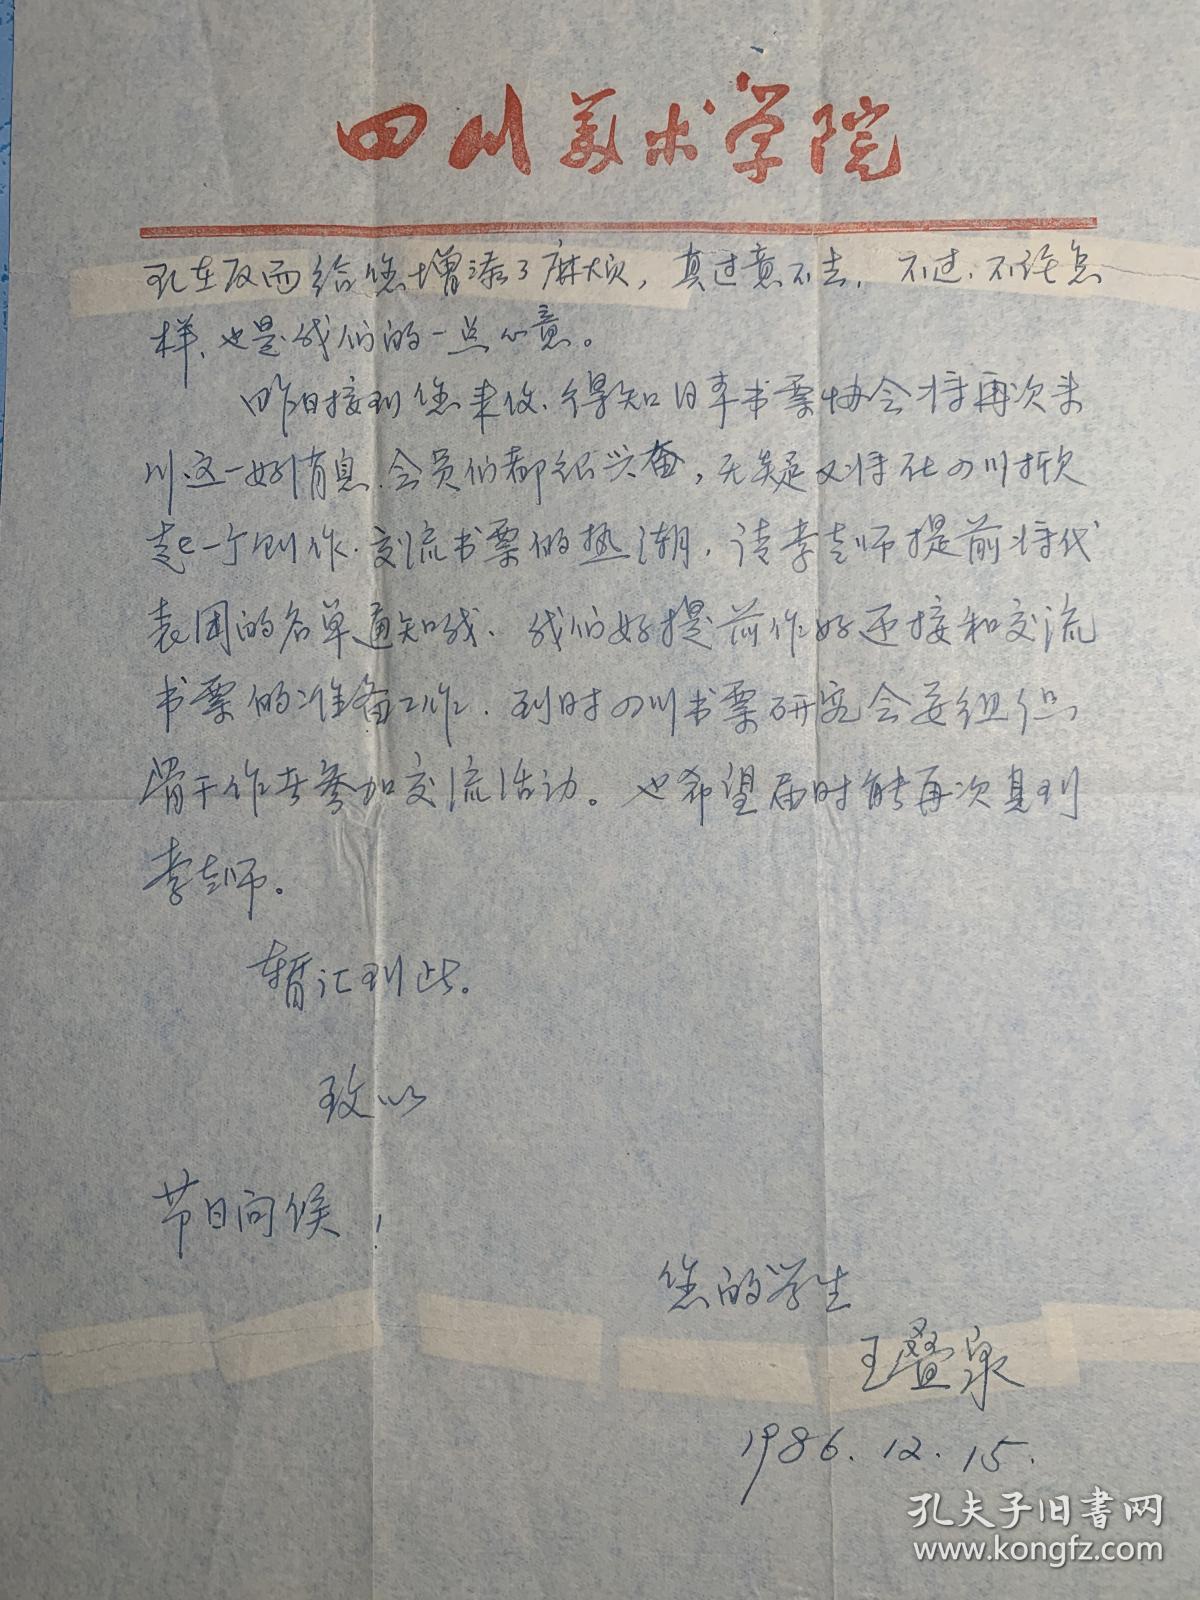 四川美术学院
现在反而给您增添了麻烦，真过意不去，不过，不论怎
样，也是我们的一点心意。
昨日接到您来信，得知日本书票协会将再次来
川，这一好消息，会员们都很兴奋，无疑又将在四川掀
起一个创作、交流书票的热潮，请李老师提前将代
表团的名单通知我、我们好提前作好迎接和交流
书票的准备工作，到时四川书票研究会要组织
骨干作者参加交流活动。也希望届时能再次见到
李老师。
暂汇到此。
致以
节日问候！
您的学生
王叠泉
1986.12.15.
孔夫子旧书网
www.kongfz.com